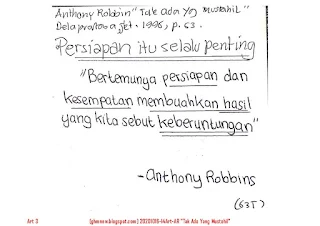 Anthony Robbin "Tak ada yg mustahil"
Delapratasa jkt. 1996, p. 63.
Persiapan itu selalu penting
"Bertemunya persiapan dan
kesempatan membuahkan hasil
yang kita sebut keberuntungan"
-Anthony Robbins
(63T)
Art 3
(ghnnew.blogspot.com) 20201018-164Art-AR "Tak Ada Yang Mustahil"